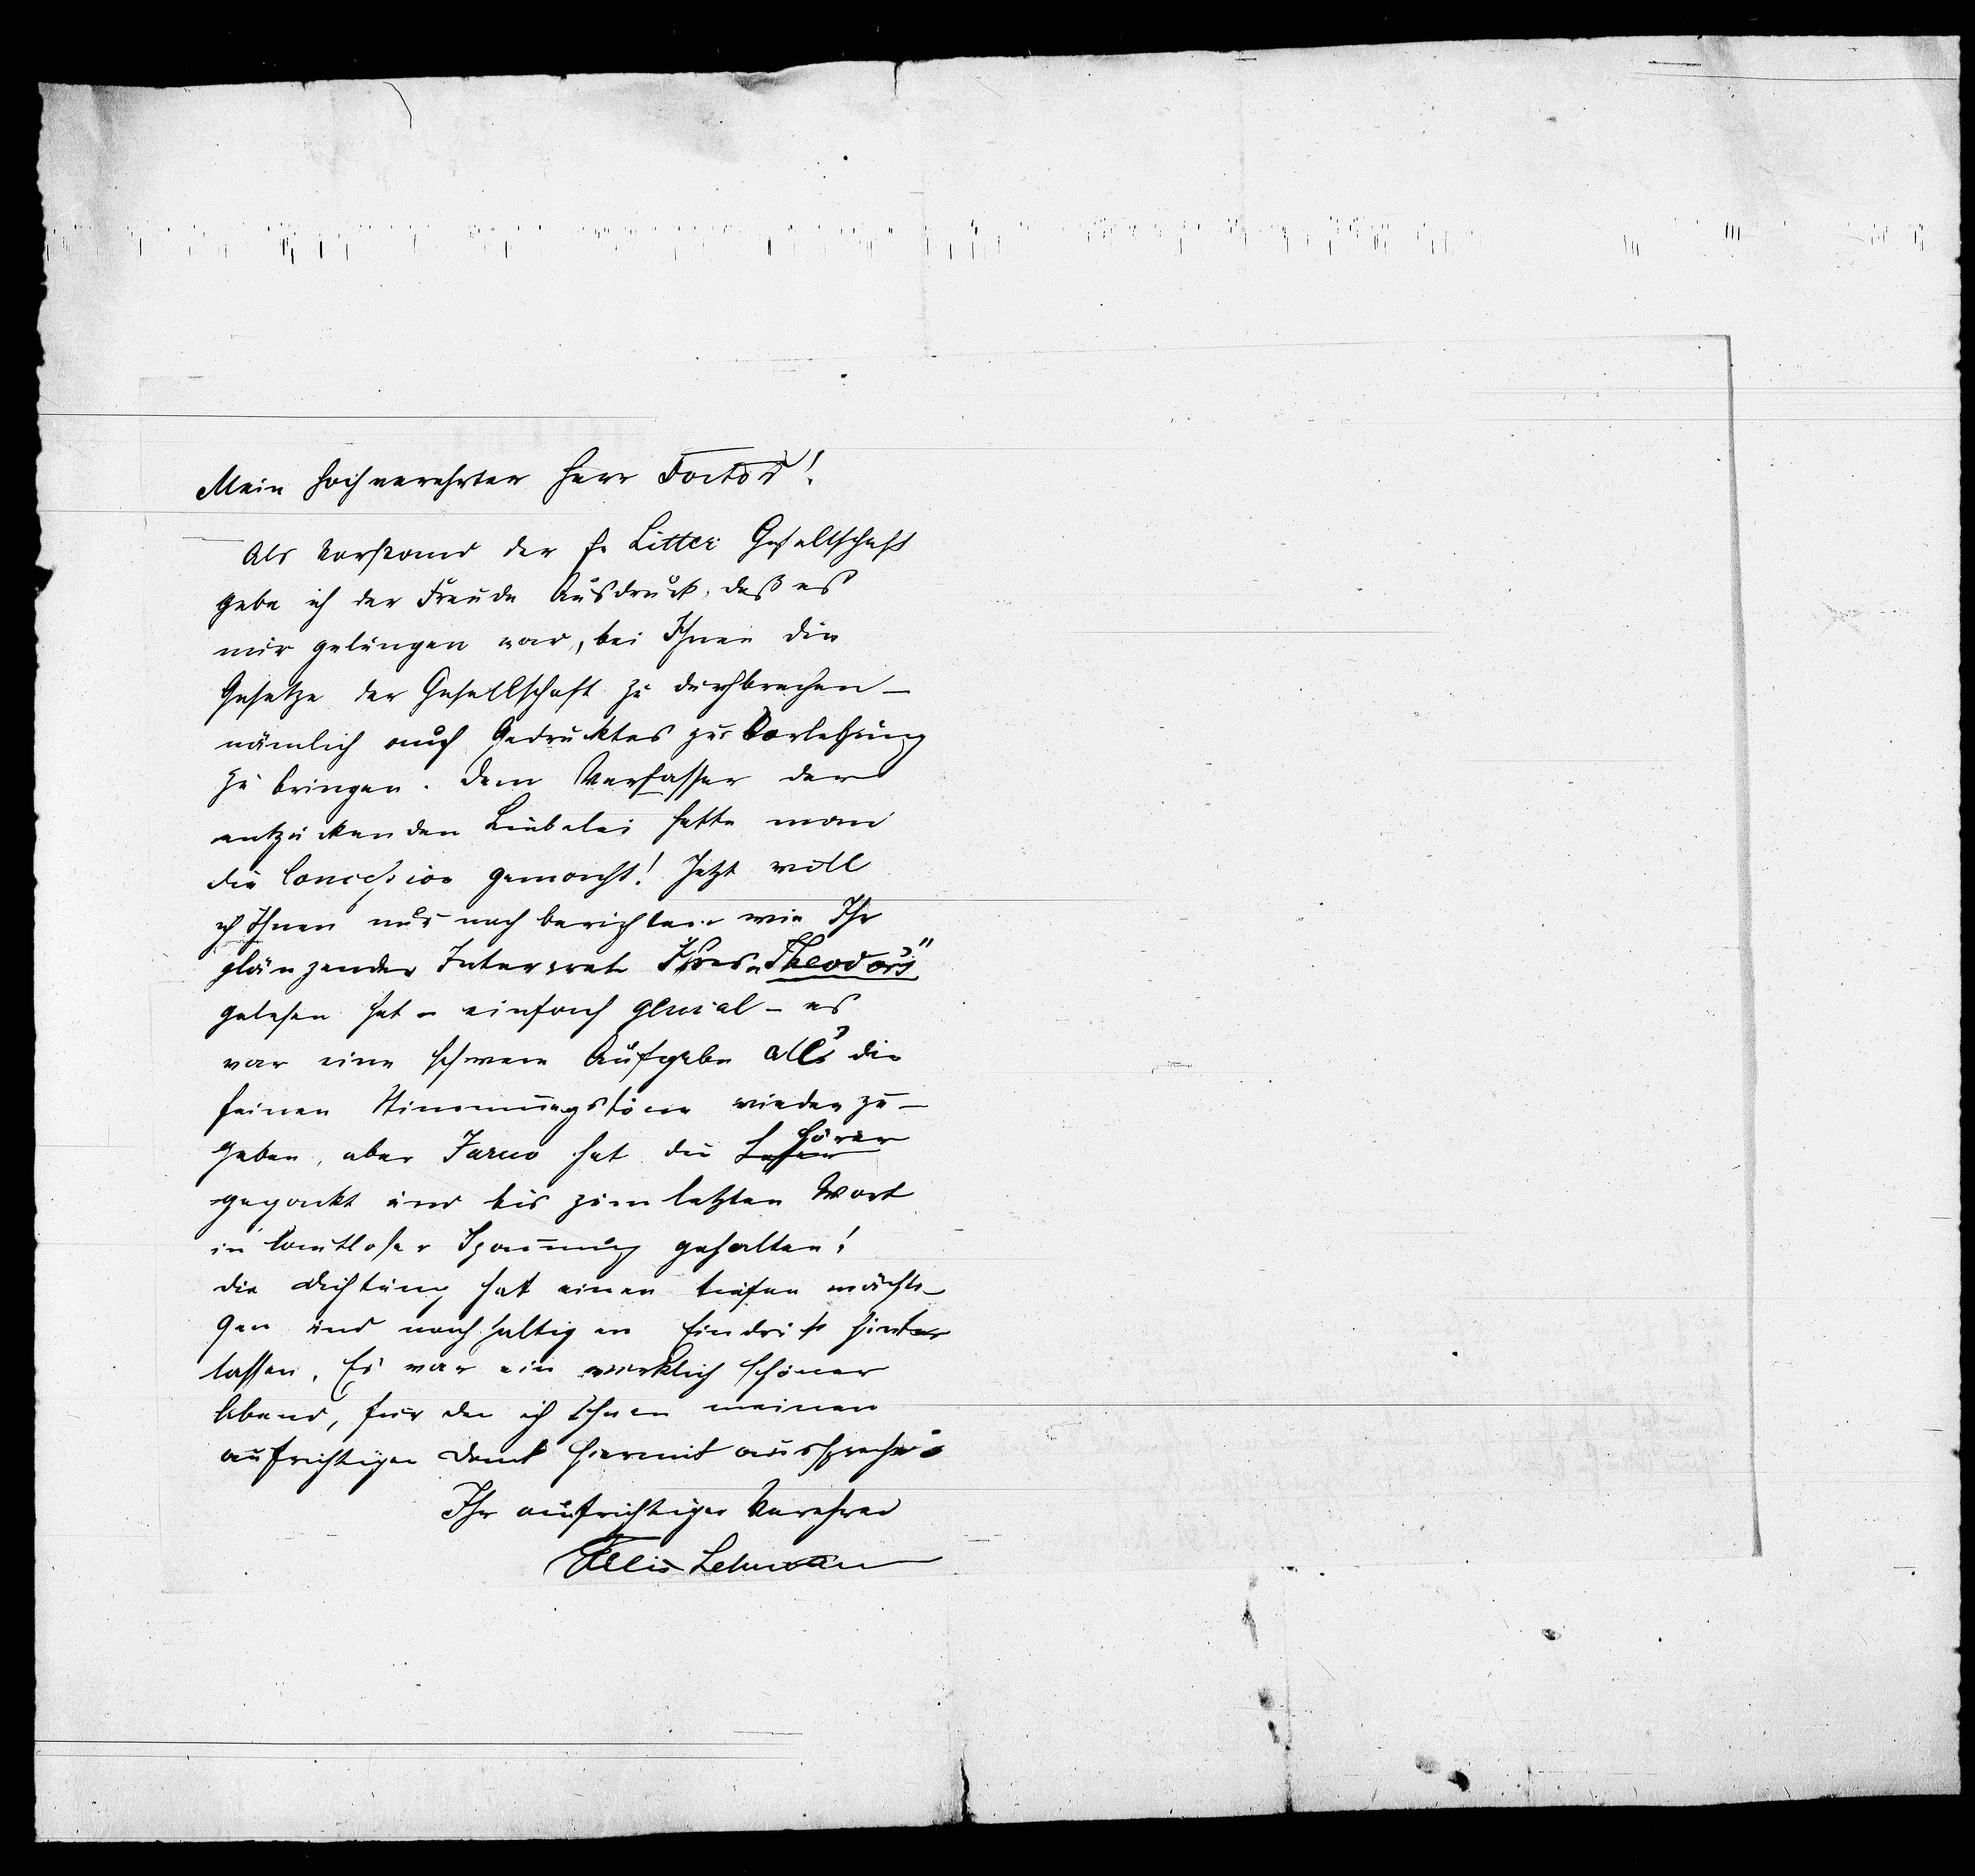 Mein hochverehrter Herr Doctor!
Als Vorstand der fr. Litter Gesellschaft
gebe ich der Freude Ausdruck, daß es
mir gelungen war, bei Ihnen die
Gesetze der Gesellschaft zu durchbrechen –
nämlich auch Gedrucktes zur Vorlesung
zu bringen. Dem Verfasser der
entzückenden Liebelei hatte man
die Concession gemacht! Jetzt will
ich Ihnen nur noch berichten wie Ihr
glänzender Interpret Jhres „Theodors"
gelesen hat – einfach genial – es
war eine schwere Aufgabe all' die
feinen Stimmungstöne wiederzu-
geben, aber Jarno hat die Hörer
gepackt und bis zum letzten Wort
in lautloser Spannung gehalten!
Die Dichtung hat einen tiefen mächti-
gen und nachhaltigen Eindruck hinter
lassen. Es war ein wirklich schöner
Abend, für den ich Ihnen meinen
aufrichtigen Dank hiermit ausspreche.
Ihr aufrichtiger Verehrer
Lehmann